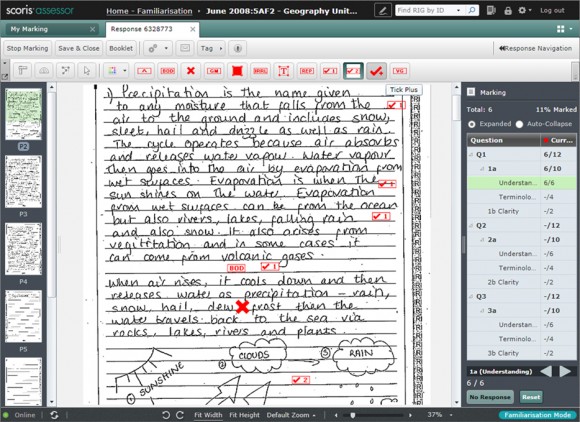 scoris assessor Home - Familiarisation ▸ June 2008:5AF2 - Geography Unit... Find RIG by ID Log out
My Marking Response 6328773
Stop Marking Save & Close Booklet Tag Response Navigation
BOD GM IRRG T REP 1 2
Tick Plus
i) Precipitation is the name given
to any moisture that falls from the
air to the ground and includes snow,
sleet, hail and drizzle as well as rain.
The cycle operates because air absorbs
and releases water vapour. Water vapour
then goes into the air by evaporation from
wet surfaces. Evaporation is when the
sun shines on the water. Evaporation
from wet surfaces can be from the ocean
but also rivers, lakes, falling rain
and also snow. It also arises from
vegititation and in some cases it
can come from volcanic gases.
BOD 1
When air rises, it cools down and then
releases water as precipitation – rain,
snow, hail, dew frost then the
water travels back to the sea via
rocks, lakes, rivers and plants.
① SUNSHINE ② CLOUDS ③ RAIN
2
P2
P3
P4
P5
Marking
Total: 6 11% Marked
Expanded Auto-Collapse
Question Curr...
Q1 6/12
1a 6/10
Understan... 6/6
Terminolo... -/4
1b Clarity -/2
Q2 -/12
2a -/10
Understan... -/6
Terminolo... -/4
2b Clarity -/2
Q3 -/12
3a -/10
Understan... -/6
Terminolo... -/4
3b Clarity -/2
1a (Understanding)
6 / 6
No Response Reset
Online Fit Width Fit Height Default Zoom 37% Familiarisation Mode